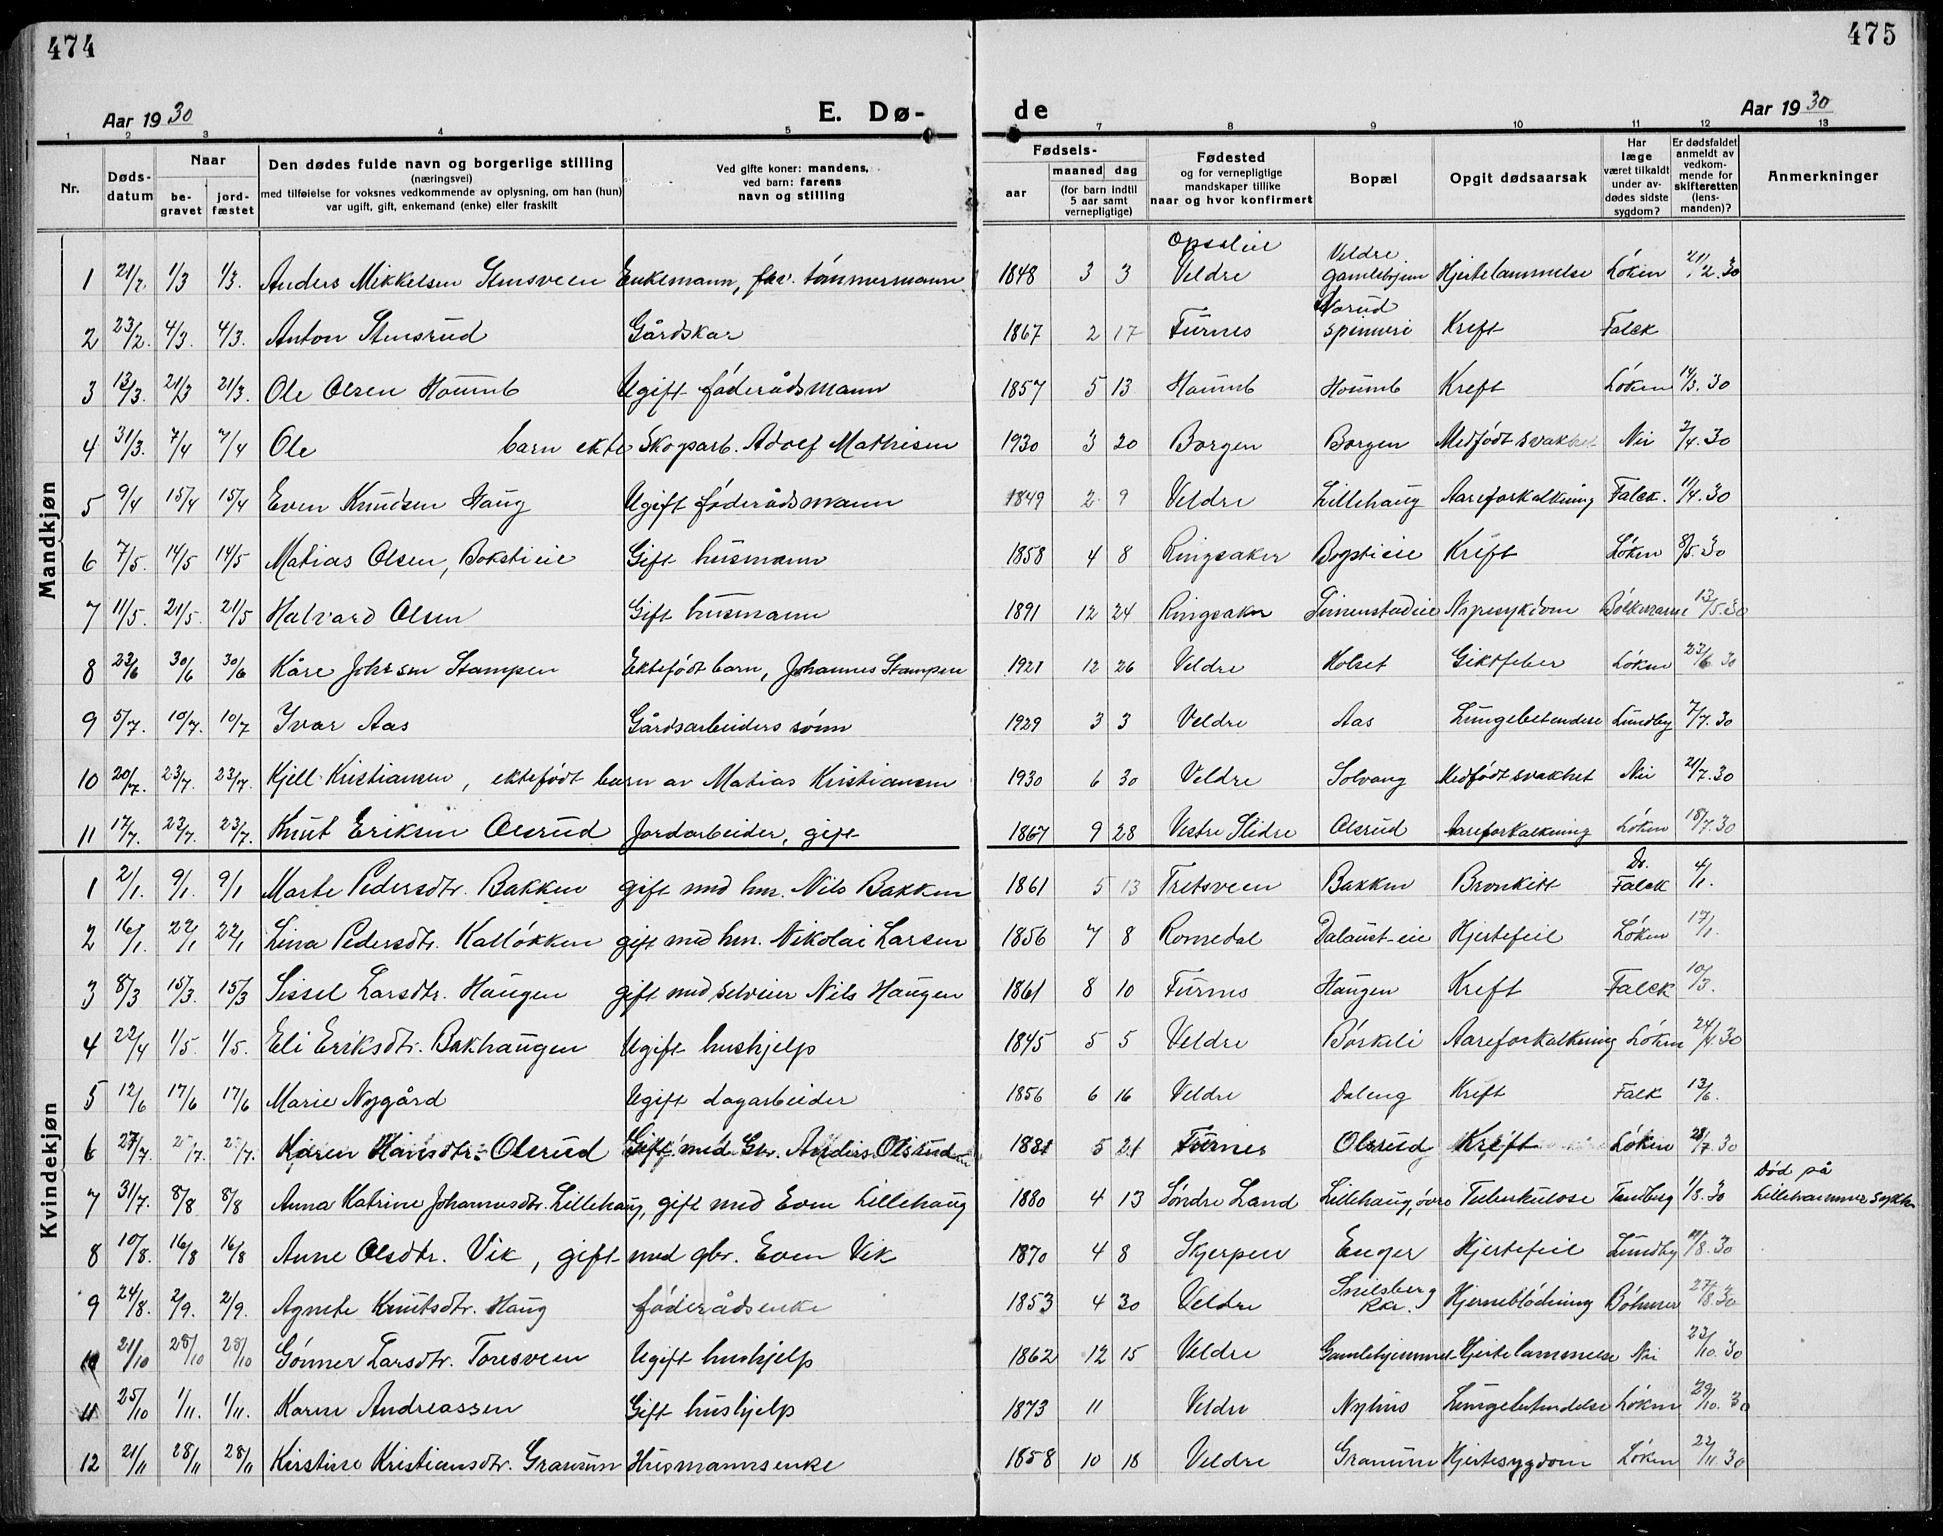 474
475
Aar 1930
E. Dø-
de
Aar 1930
1 2 3 4 5
7 8 9 10 11 12 13
Nr.
Døds-
datum
Naar
be-
gravet
jord-
fæstet
Den dødes fulde navn og borgerlige stilling
(næringsvei)
med tilføielse for voksnes vedkommende av oplysning, om han (hun)
var ugift, gift, enkemand (enke) eller fraskilt
Ved gifte koner: mandens,
ved barn: farens
navn og stilling
Fødsels-
aar
maaned dag
(for barn indtil
5 aar samt
vernepligtige)
Fødested
og for vernepligtige
mandskaper tillike
naar og hvor konfirmert
Bopæl
Opgit dødsaarsak
Har
læge
været tilkaldt
under av-
dødes sidste
sygdom?
Er dødsfaldet
anmeldt av
vedkom-
mende for
skifteretten
(lens-
manden)?
Anmerkninger
Mandkjøn
1 21/2. 1/3 1/3. Anders Mikkelsen Stensveen Enkemann, fhv. tømmermann 1848 3 3 Opsaleie Veldre Veldre gamlehjem Hjertelammelse Løken 21/2.30
2 23/2. 4/3. 4/3. Anton Stensrud Gårdskar 1867 2 17 Furnes Norud spinneri Kreft Falck
3 13/3. 21/3 21/3. Ole Olsen Houmb Ugift føderådsmann 1857 5 13 Houmb Houmb Kreft Løken 14/3.30
4 31/3. 7/4 7/4 Ole barn ekte Skogsarb. Adolf Mathisen 1930 3 20 Borgen Borgen Medfødt svakhet Nei 2/4.30
5 9/4 15/4 15/4 Even Knudsen Haug Ugift føderådsmann 1849 2 9 Veldre Lillehaug Aareforkalkning Falck. 11/4.30
6 7/5. 14/5 14/5 Matias Olsen, Bokstieie Gift husmann 1858 4 8 Ringsaker Bogstieie Kreft Løken 8/5.30
7 11/5. 21/5. 21/5 Halvard Olsen Gift husmann 1891 12 24 Ringsaker Nyresykdom 13/5.30
8 23/6 30/6 30/6 Kåre Johnsen Stampen Ektefødt barn, Johannes Stampen 1921 12 26 Veldre Holset Giktfeber Løken 23/6 30
9 5/7. 10/7. 10/7 Ivar Aas Gårdsarbeiders sønn 1929 3 3 Veldre Aas Lungebetendelse Lundby 7/7.30
10 20/7. 23/7. 23/7. Kjell Kristiansen, ektefødt barn av Matias Kristiansen 1930 6 30 Veldre Solvang Medfødt svakhet Nei 21/7.30
11 17/7. 23/7. 23/7. Knut Eriksen Olsrud Jordarbeider, gift 1867 9 28 Vestre Slidre Olsrud Aareforkalkning Løken 18/7.30
Kvindekjøn
1 2/1. 9/1. 9/1 Marte Pedersdtr. Bakken gift med hm. Nils Bakken 1861 5 13 Tretsveen Bakken Bronkitt Dr. Falck 4/1.
2 16/1. 22/1 22/1 Lina Pedersdtr. Kalløkken gift med hm. Nikolai Larsen 1856 7 8 Romedal Dalaust-eie Hjertefeil Løken 17/1.
3 8/3 15/3. 15/3 Sissel Larsdtr. Haugen gift med selveier Nils Haugen 1861 8 10 Furnes Haugen Kreft Falck 10/3.
4 22/4 1/5. 1/5. Eli Eriksdtr. Bakhaugen Ugift hushjelp 1845 5 5 Veldre Børkeli Aareforkalkning Løken 24/4.30
5 12/6 17/6 17/6 Marie Nygård Ugift dagarbeider 1856 6 16 Veldre Daleng Kreft Falck 13/6.
6 27/7. Karen Hansdtr. Olsrud Gift med Gbr. Anders Olsrud 1881 5 21 Furnes Olsrud Kreft Løken 28/7.30
7 31/7. 8/8 8/8 Anna Katrine Johannesdtr. Lillehaug, gift med Even Lillehaug 1880 4 13 Søndre Land Lillehaug, øvre Tuberkulose Tandberg 1/8.30 Død på Lillehammer sykh.
8 10/8. 16/8 16/8 Anne Olsdtr. Vik, gift med gbr. Even Vik 1870 4 8 Skjerpen Enger Hjertefeil Lundby 11/8.30
9 24/8. 2/9. 2/9. Agnete Knutsdtr. Haug føderådsenke 1853 4 30 Veldre Snilsberg Hjerneblødning Bøhmer 27/8.30
10 21/10 28/10 28/10 Gønner Larsdtr. Toresveen Ugift hushjelp 1862 12 15 Veldre Gamlehjemmet Hjertelammelse Nei 23/10.30
11 25/10 1/11. 1/11. Karen Andreassen Gift hushjelp 1873 11 Veldre Nyhus Lungebetendelse Løken 29/10.30
12 21/11 28/11 28/11 Kirstine Kristiansdtr. Granum Husmannsenke 1858 10 18 Veldre Granum Hjertesygdom Løken 22/11.30